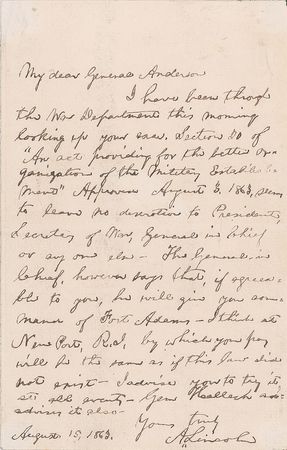 My dear General Anderson
I have been through
the War Department this morning
looking up your case. Section 20 of
"An act providing for the better or-
ganization of the Military Establish
ment" Approved August 3, 1863, seems
to leave no discretion to President,
Secretary of War, General in Chief
or any one else— The General-in-
Chief, however says that, if agreea-
ble to you, he will give you com-
mand of Fort Adams— I think at
New Port, R.I. by which your pay
will be the same as if this law did
not exist— I advise you to try it,
at all events— Gen Halleck ad-
advises it also—
Yours truly
August 15, 1863. A. Lincoln